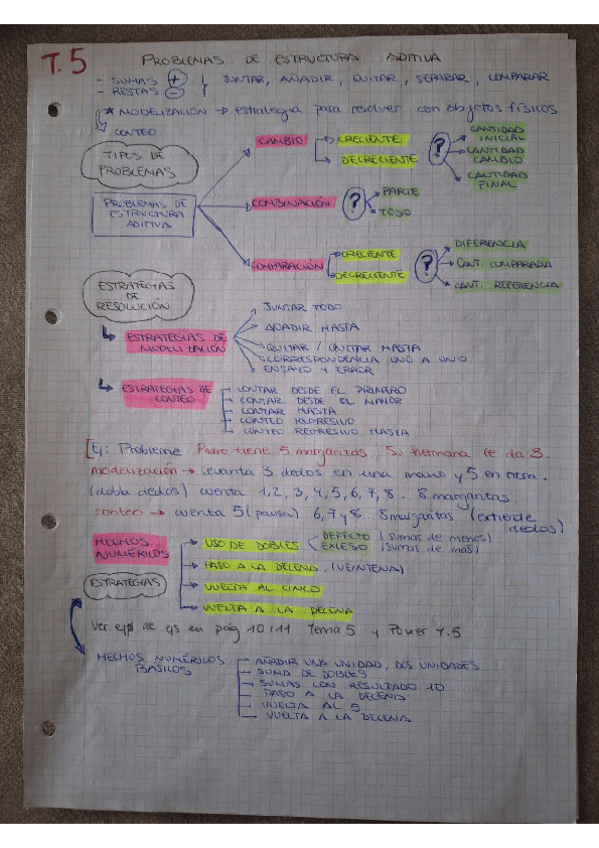 T.5 PROBLEMAS DE ESTRUCTURA ADITIVA
- SUMAS + y JUNTAR, AÑADIR, QUITAR, SEPARAR, COMPARAR
- RESTAS -
* MODELIZACIÓN → estrategia para resolver con objetos físicos
CONTEO
TIPOS DE PROBLEMAS
PROBLEMAS DE ESTRUCTURA ADITIVA
CAMBIO
CRECIENTE
DECRECIENTE
?
CANTIDAD INICIAL
CANTIDAD CAMBIO
CANTIDAD FINAL
COMBINACIÓN
?
PARTE
TODO
COMPARACIÓN
CRECIENTE
DECRECIENTE
?
DIFERENCIA
CANT. COMPARADA
CANT. REFERENCIA
ESTRATEGIAS DE RESOLUCIÓN
ESTRATEGIAS DE MODELIZACIÓN
JUNTAR TODO
AÑADIR HASTA
QUITAR / QUITAR HASTA
CORRESPONDENCIA UNO A UNO
ENSAYO Y ERROR
ESTRATEGIAS DE CONTEO
CONTAR DESDE EL PRIMERO
CONTAR DESDE EL MAYOR
CONTAR HASTA
CONTEO REGRESIVO
CONTEO REGRESIVO HASTA
Ej: Problema Pedro tiene 5 margaritas. Su hermana le da 3.
modelización → levanta 3 dedos en una mano y 5 en otra.
(dobla dedos) cuenta 1, 2, 3, 4, 5, 6, 7, 8. 8 margaritas.
conteo → cuenta 5 (pausa) 6, 7 y 8. 8 margaritas (extiende dedos)
HECHOS NUMÉRICOS
ESTRATEGIAS
USO DE DOBLES
DEFECTO (sumas de menos)
EXCESO (sumas de más)
PASO A LA DECENA, (VEINTENA)
VUELTA AL CINCO
VUELTA A LA DECENA
Ver ejs de ejs en pág 10 / 11 Tema 5 y Power T.5
HECHOS NUMÉRICOS BÁSICOS
AÑADIR UNA UNIDAD, DOS UNIDADES
SUMA DE DOBLES
SUMAS CON RESULTADO 10
PASO A LA DECENA
VUELTA AL 5
VUELTA A LA DECENA